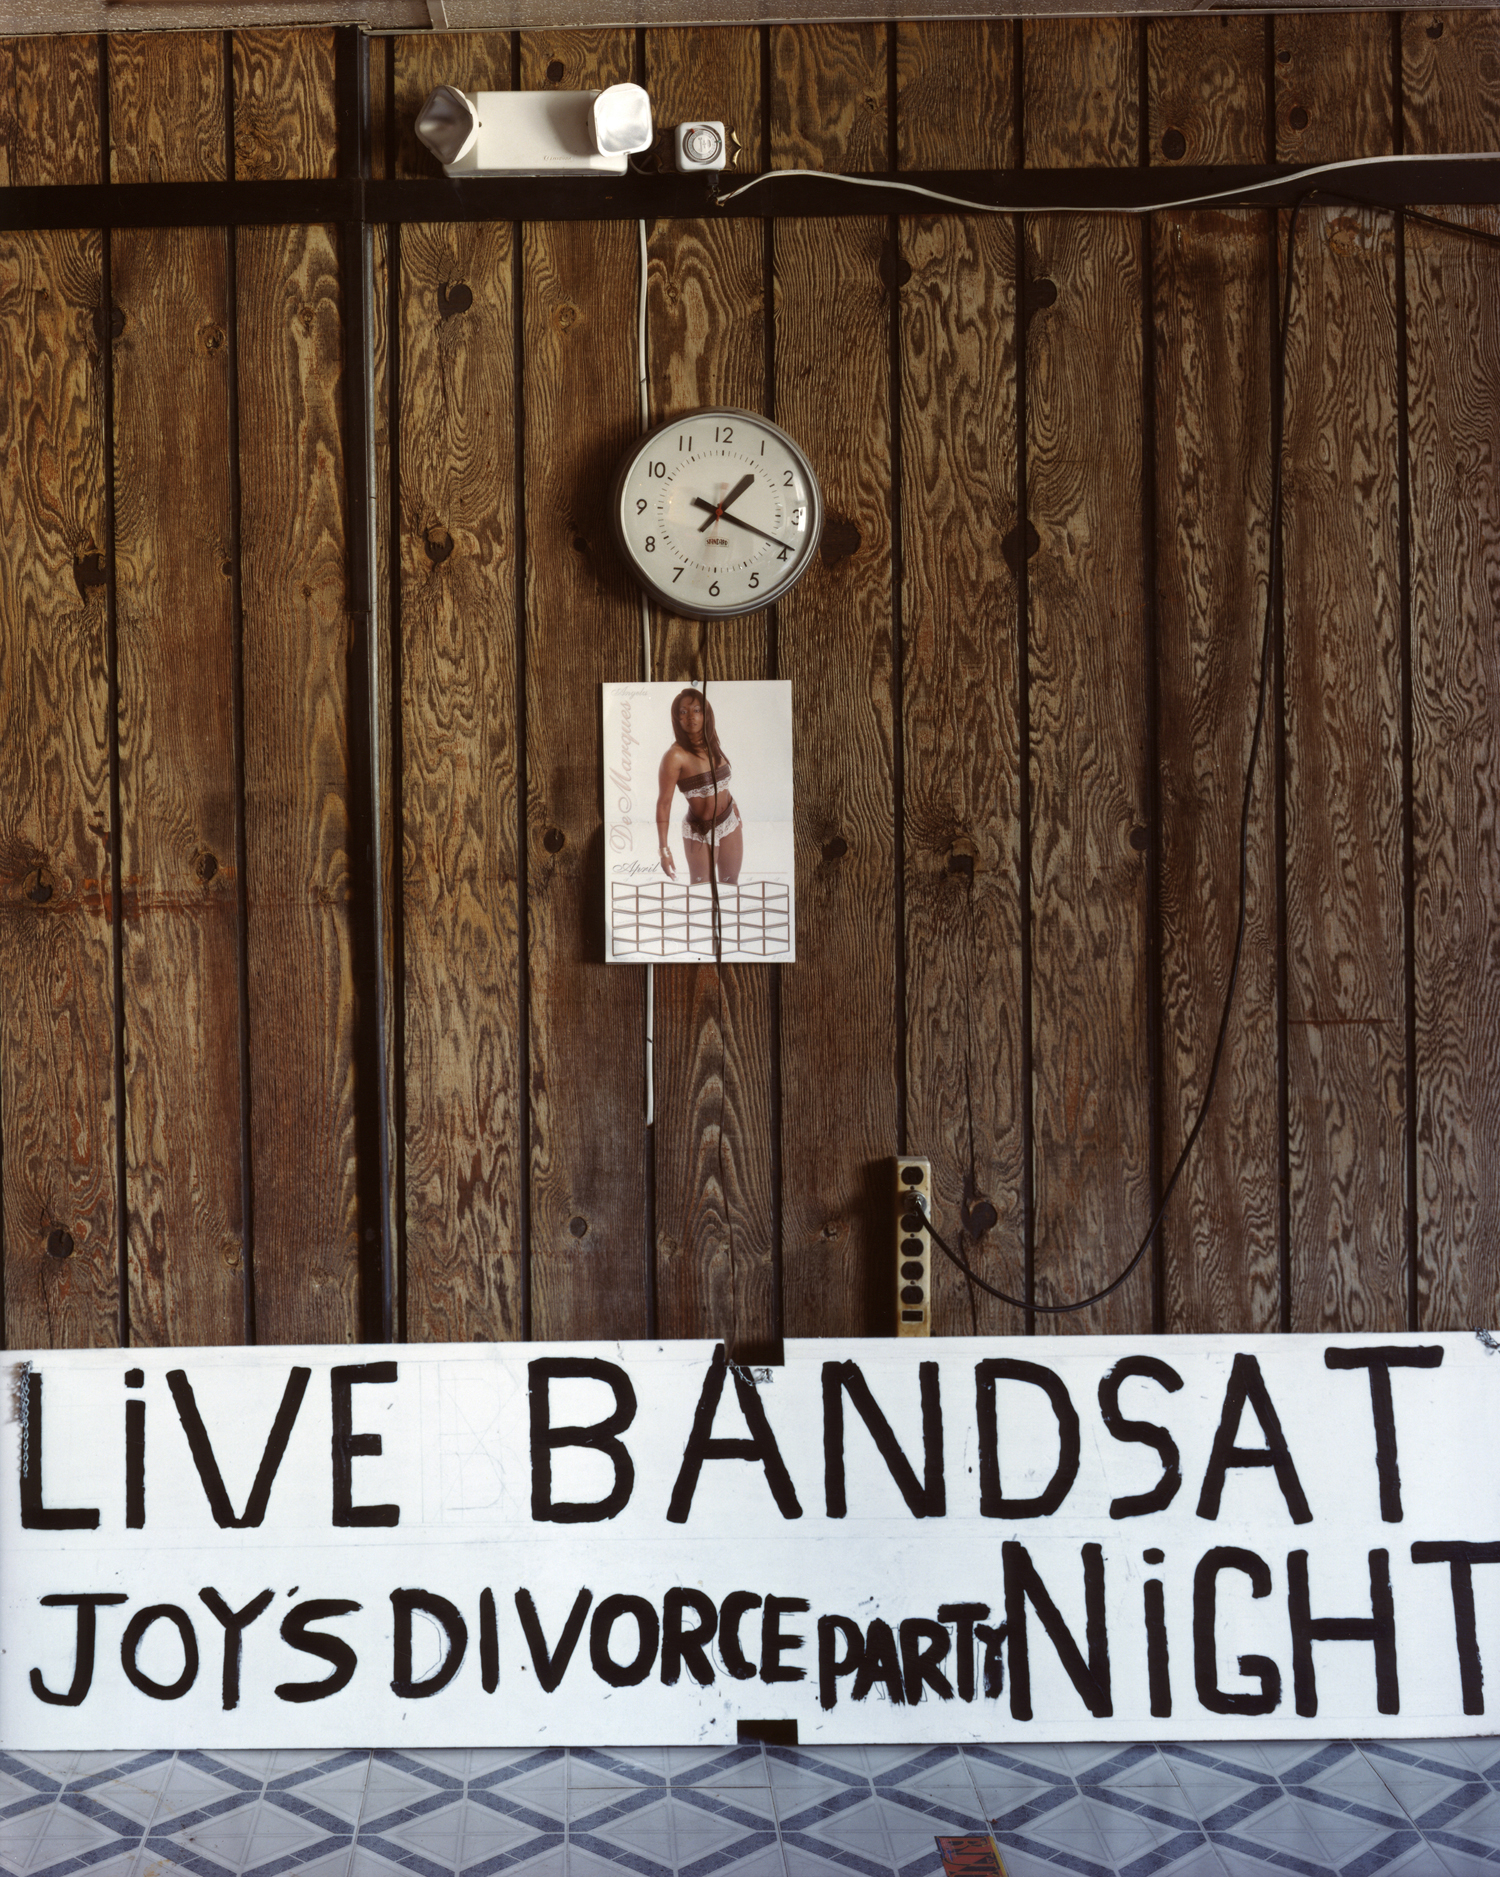 12
1
2
3
4
5
6
7
8
9
10
11
STANDARD
DeMarques
April
LiVE BANDSAT
JOY'S DIVORCE PARTY NiGHT